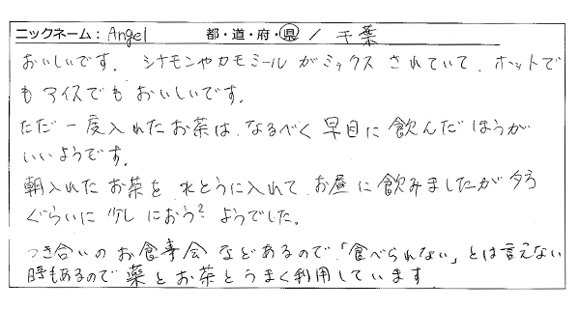 ニックネーム：Angel 都・道・府・県 / 千葉
おいしいです。シナモンやカモミールがミックスされていて、ホットで
もアイスでもおいしいです。
ただ一度入れたお茶は、なるべく早目に飲んだほうが
いいようです。
朝入れたお茶を水とうに入れてお昼に飲みましたが夕方
ぐらいに少しにおう?ようでした。
つき合いのお食事会などあるので「食べられない」とは言えない
時もあるので薬とお茶とうまく利用しています